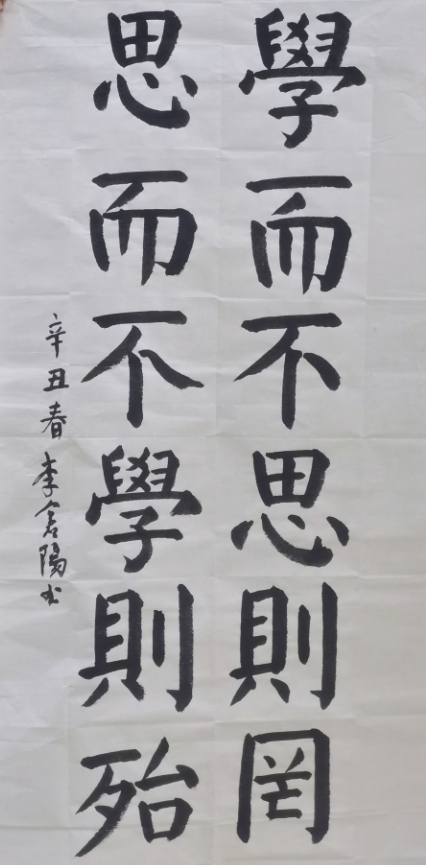 學而不思則罔
思而不學則殆
辛丑春李陽书